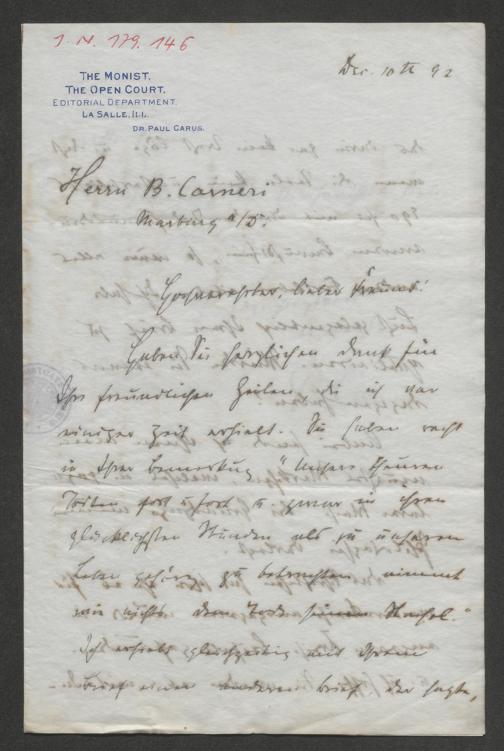 J. N. 179.146
Dec. 10th 92
THE MONIST.
THE OPEN COURT.
EDITORIAL DEPARTMENT.
LA SALLE, ILL.
DR. PAUL CARUS.
Herrn B. Carneri
Marburg a/D.
Hochverehrter, lieber Freund!
Haben Sie herzlichen Dank für
Ihre freundlichen Zeilen, die ich vor
einiger Zeit erhielt. Sie haben recht
in Ihrer Bemerkung "Unsere theuren
Toten fort u fort u zwar in ihren
glücklichsten Stunden als zu unserem
Leben gehörig zu betrachten nimmt
wie nichts dem Tode seinen Stachel."
Ich erhielt gleichzeitig mit Ihrem
Brief einen anderen Brief der sagte,